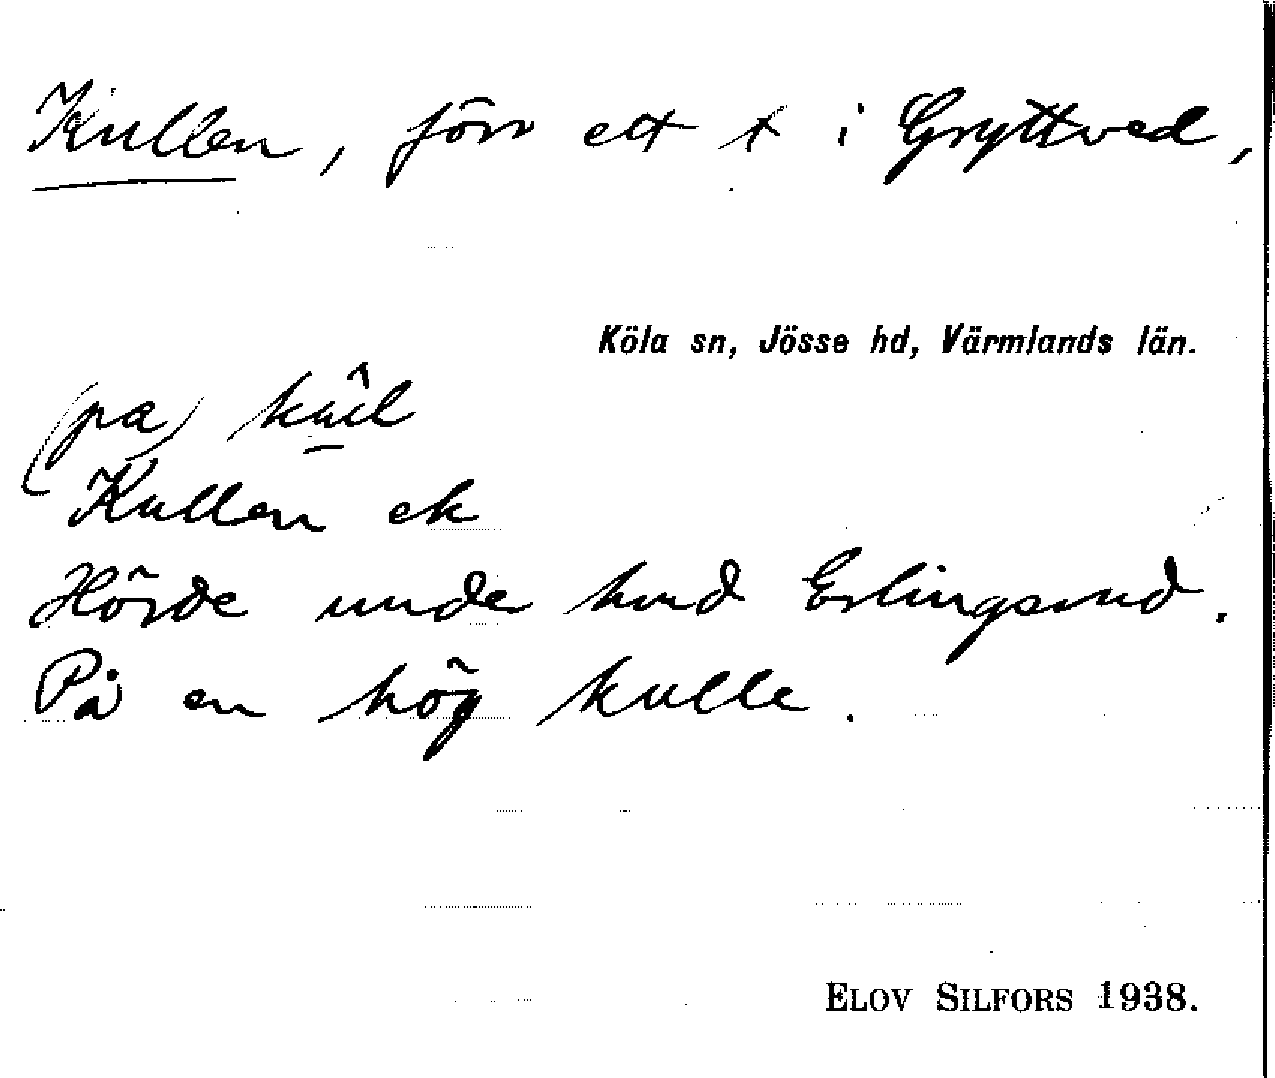 Kullen, förr ett t i Gryttved,
Köla sn, Jösse hd, Värmlands län.
(pa)
Kullen ek
Hörde unde hmd Erlingsrud.
På en hög kulle.
ELOV SILFORS 1938.